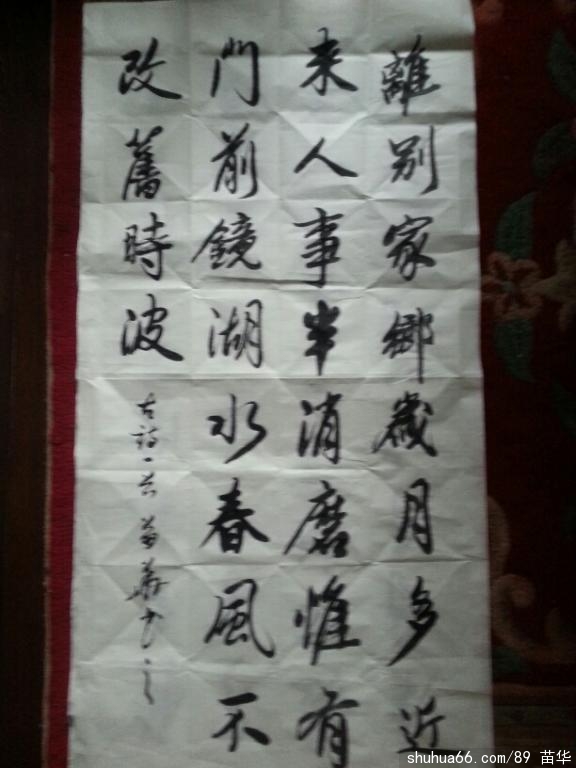 離別家鄉歲月多近
来人事半消磨惟有
門前鏡湖水春風不
改舊時波
古詩一首 苗華书之
shuhua66.com/89 苗华